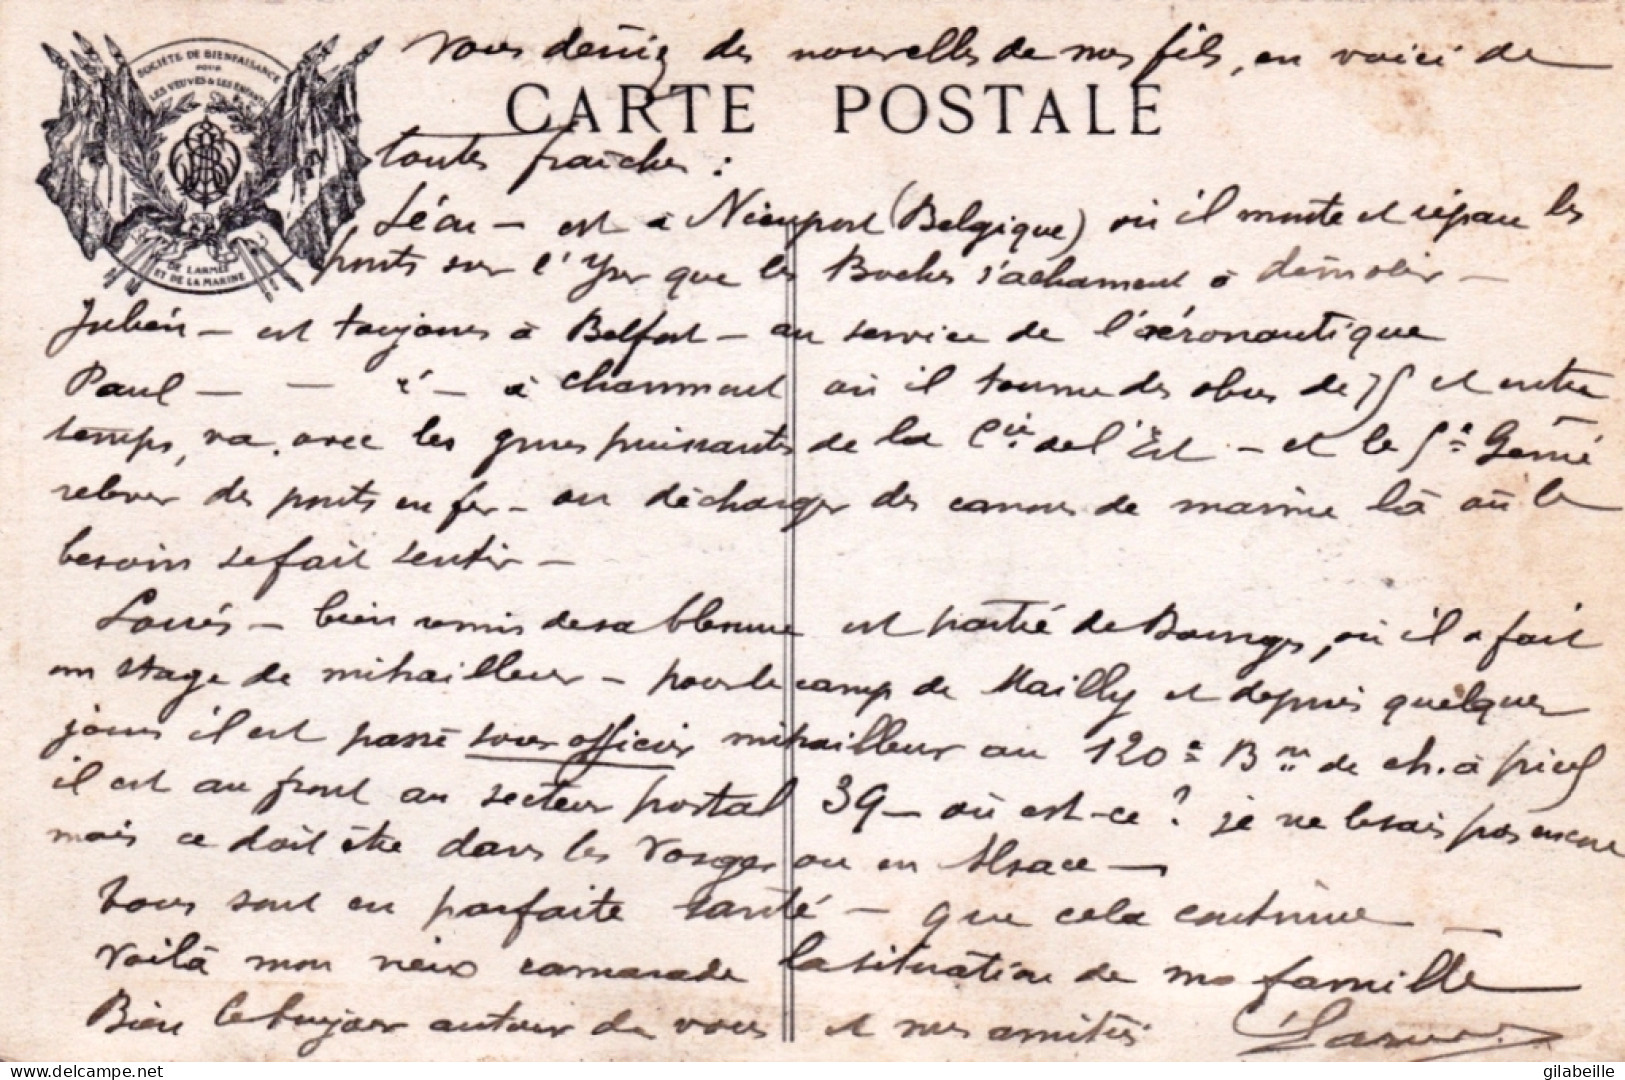 Vous désirez des nouvelles de mes fils, en voici de
SOCIÉTÉ DE BIENFAISANCE
POUR
LES VEUVES & LES ENFANTS
DE L'ARMÉE
ET DE LA MARINE
CARTE POSTALE
toutes fraîches :
Léon – est à Nieuport (Belgique) où il monte et répare les
ponts sur l'Yser que les Boches s'acharnent à démolir –
Julien – est toujours à Belfort – au service de l'aéronautique
Paul – – – à Chaumont où il tourne des obus de 75 et entre
temps, va avec les grues puissantes de la Cie de l'Est – et le 5e Génie
relever des ponts en fer – ou décharger des canons de marine là où le
besoin se fait sentir –
Louis – bien remis de sa blessure est parti de Bourges, où il a fait
un stage de mitrailleur – pour le camp de Mailly et depuis quelques
jours il est passé sous officier mitrailleur au 120e Bon de ch. à pied
il est au front au secteur postal 39 – où est-ce ? je ne le sais pas encore
mais ce doit être dans les Vosges ou en Alsace –
Tous sont en parfaite santé – que cela continue –
Voilà mon vieux camarade la situation de ma famille
Bien le bonjour autour de vous et mes amitiés
gilabeille